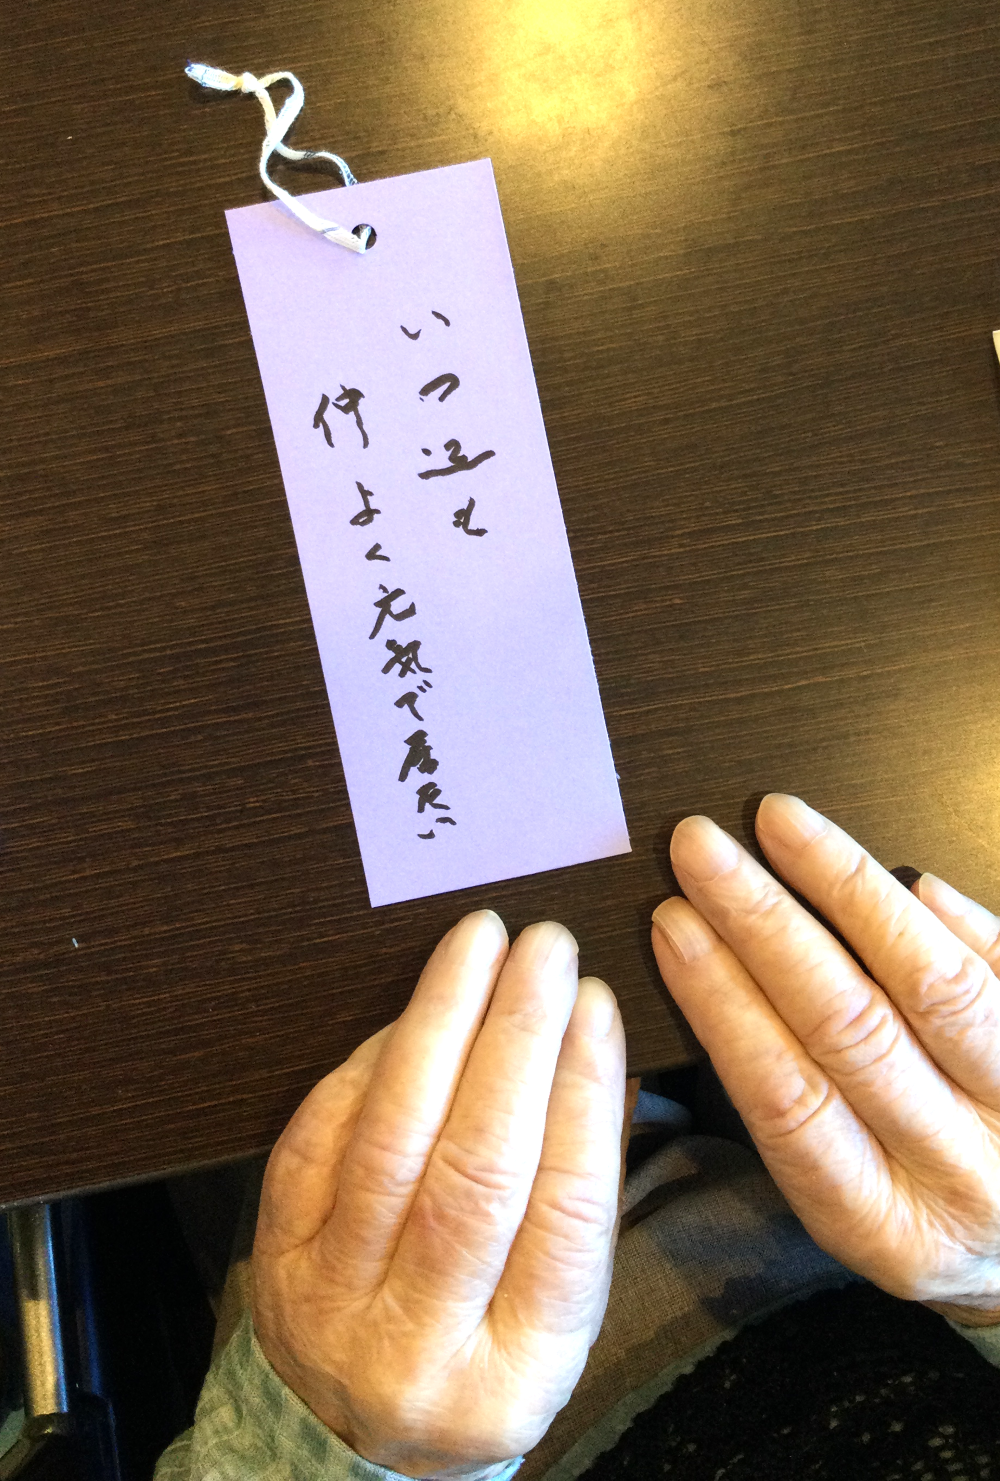 いつ迄も
仲よく元気で居たい